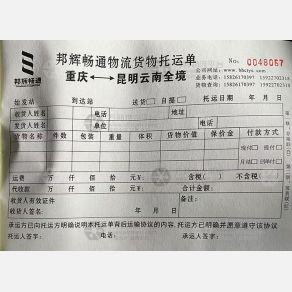 邦辉畅通物流货物托运单
No: 0048057
邦辉畅通
重庆⟷昆明云南全境
始发站 到达站 送货□ 自提□ 托运日期 年 月 日
收货人姓名 电话 地址
发货人姓名 电话 单位
货物名称 件数 包装 重量 体积 货物价值 保价金 付款方式
现付□ 提付□
月结□ 回单付□
运费 万 仟 佰 拾 元¥: 含税( ) 不含税( )
代收款 万 仟 佰 拾 元¥: 合计金额:
收货人有效证件 备注:
收货人签名: 年 月 日
承运方已向托运方明确说明本托运单背后运输协议的内容,托运方已明确并愿意遵守该协议
托运人签字: 电话: 承运人签字: